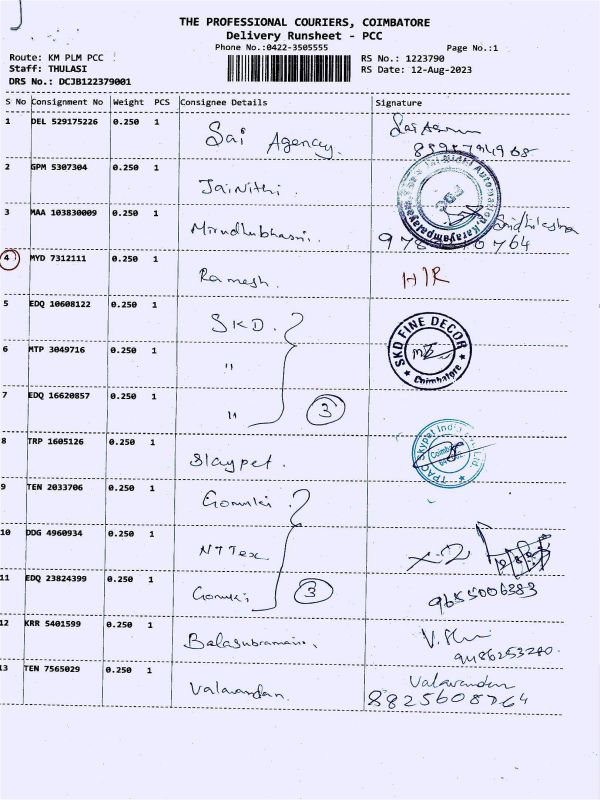 THE PROFESSIONAL COURIERS, COIMBATORE
Delivery Runsheet - PCC
Phone No.:0422-3505555
Page No.:1
Route: KM PLM PCC
Staff: THULASI
DRS No.: DCJB122379001
RS No.: 1223790
RS Date: 12-Aug-2023
S No Consignment No Weight PCS Consignee Details Signature
1 DEL 529175226 0.250 1 Sai Agency.
2 GPM 5307304 0.250 1 JaiNithi.
3 MAA 103830009 0.250 1
4 MYD 7312111 0.250 1 Ramesh. HIR
5 EDQ 10608122 0.250 1 SKD.
SKD FINE DECOR
Coimbatore
6 MTP 3049716 0.250 1 "
7 EDQ 16620857 0.250 1 " 3
8 TRP 1605126 0.250 1
9 TEN 2033706 0.250 1
10 DDG 4960934 0.250 1 NTTex
11 EDQ 23824399 0.250 1 3 9655006383
12 KRR 5401599 0.250 1
13 TEN 7565029 0.250 1 Valavandan. Valavandan
8825608764